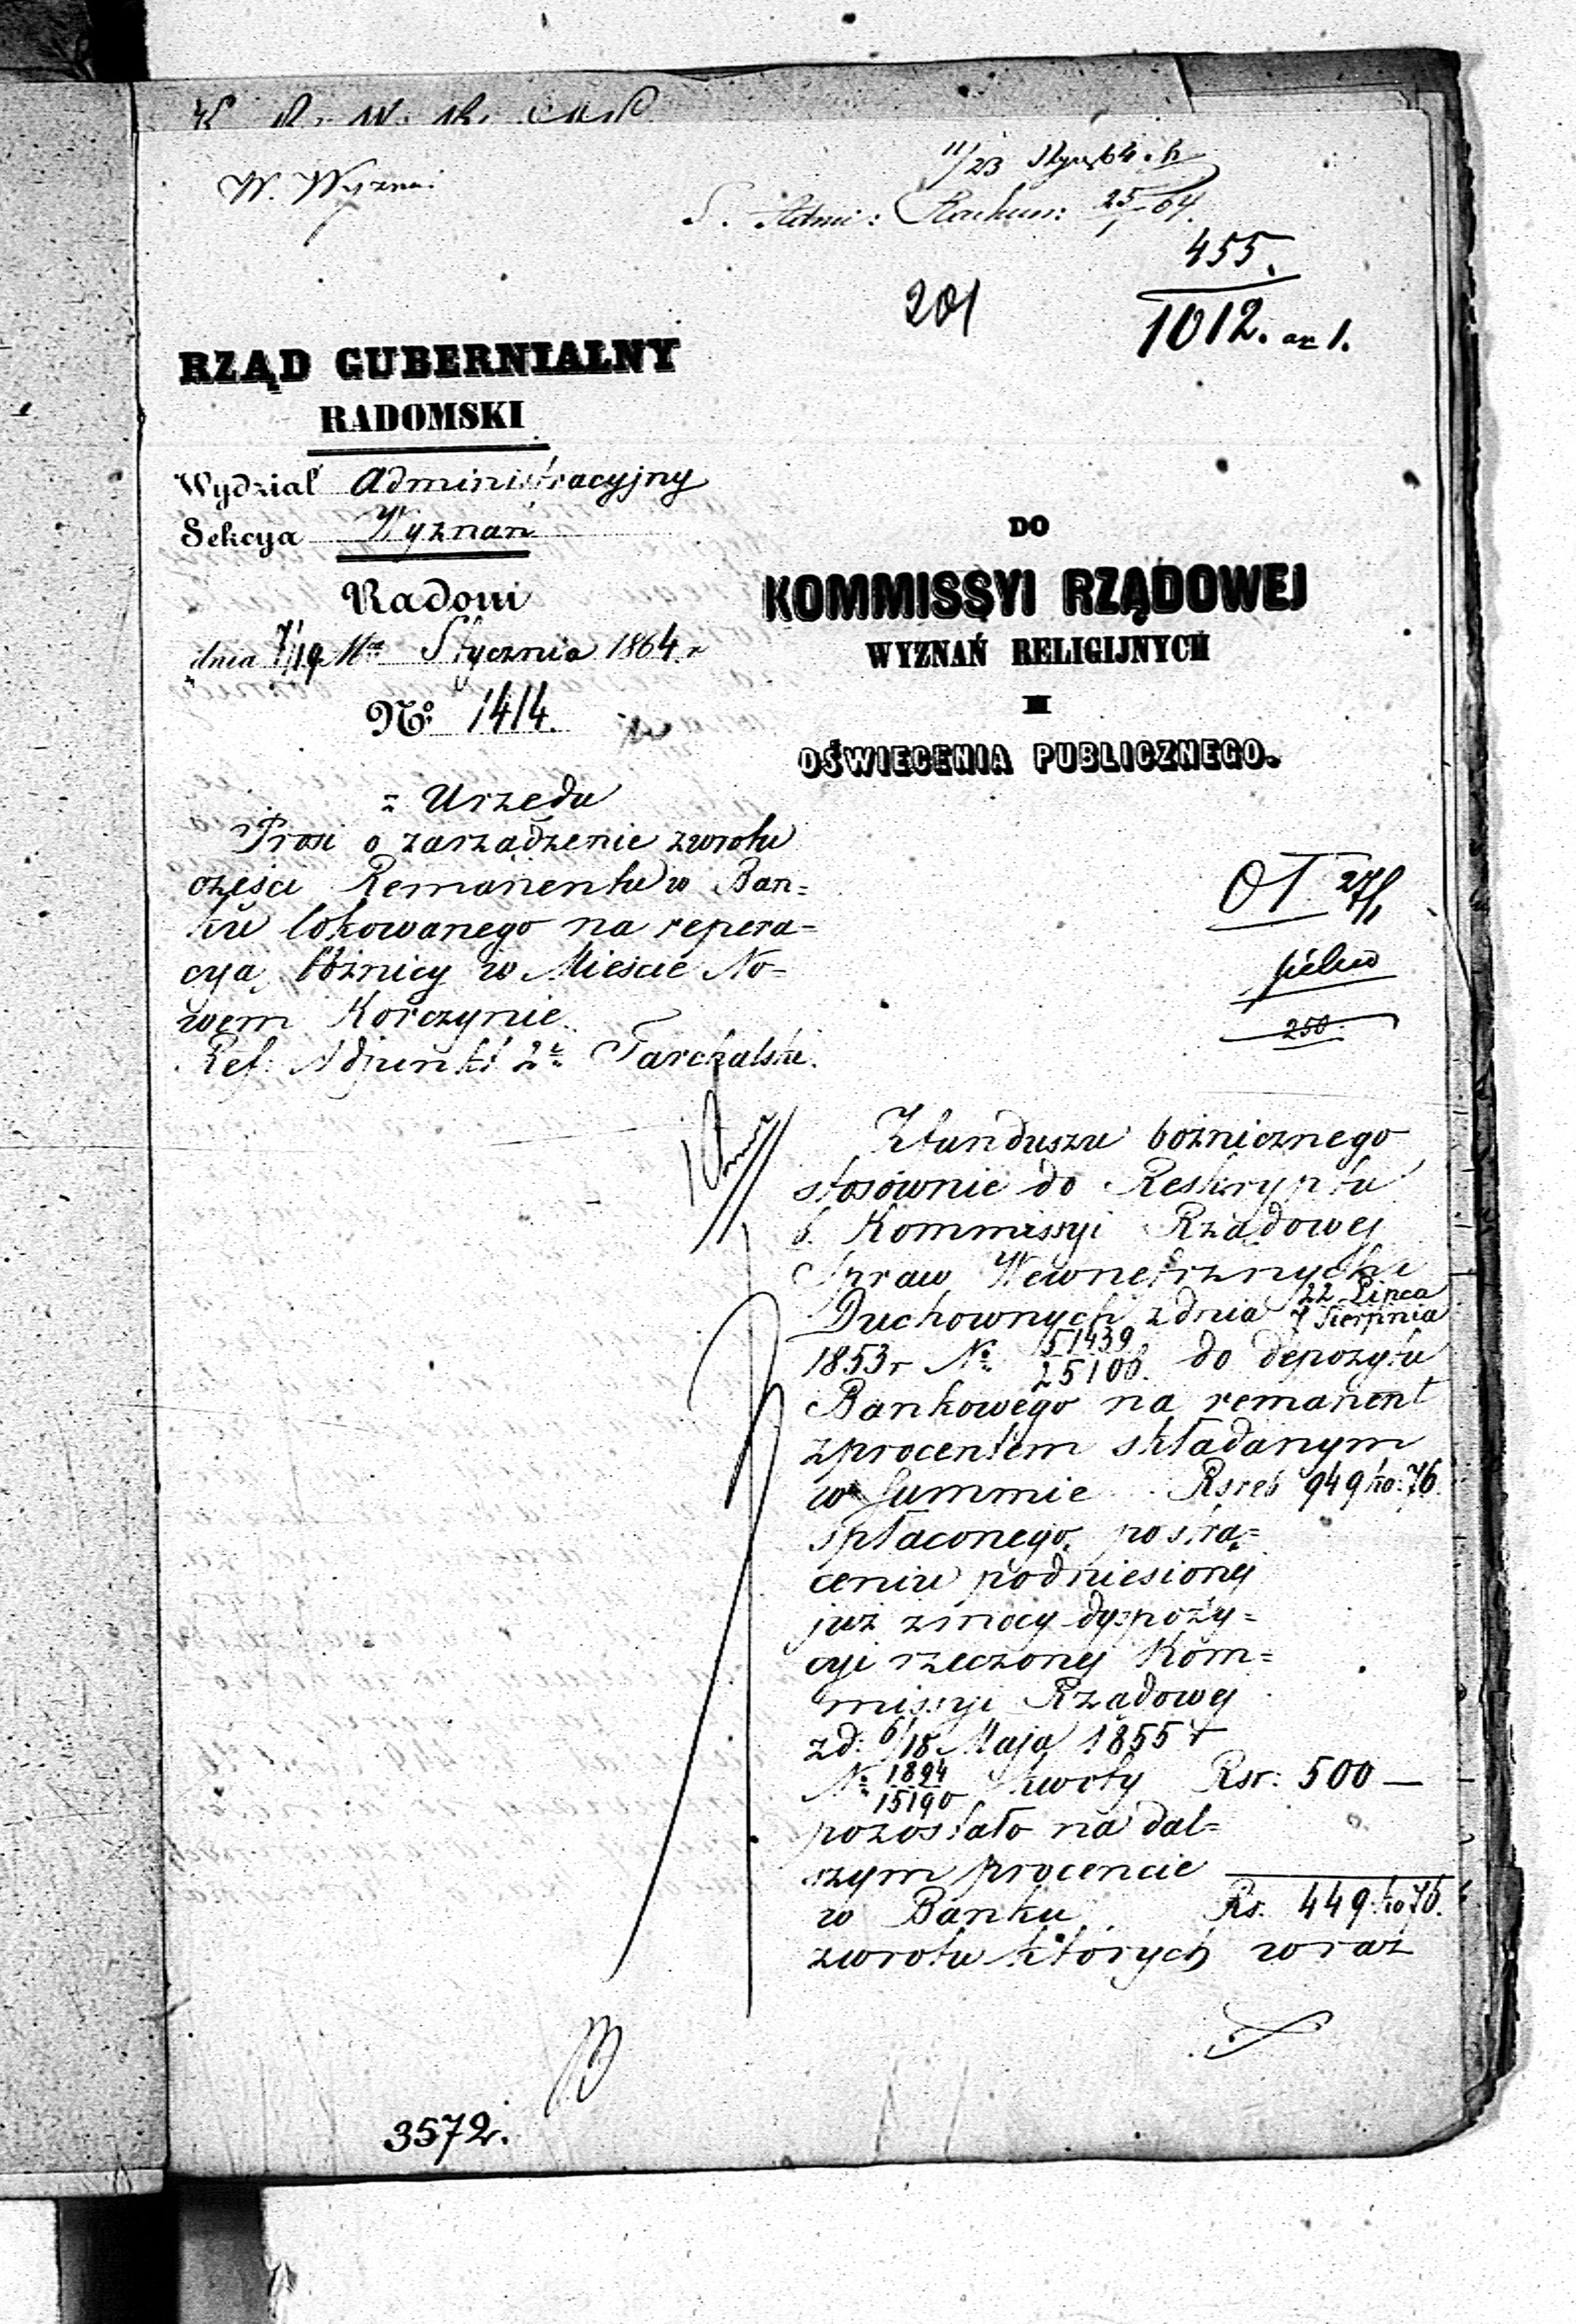 W. Wyznań
11/23 Stycz 64 r
S. Admi: Rachun: 25/1 64.
455.
1012. an 1.
201
RZĄD GUBERNIALNY
RADOMSKI
Wydział Administracyjny
Sekcya Wyznań
Radom
dnia 7/19 Mca Stycznia 1864 r
No: 1414.
DO
KOMMISSYI RZĄDOWEJ
WYZNAŃ RELIGIJNYCH
I
OŚWIECENIA PUBLICZNEGO.
z Urzędu
Prosi o zarządzenie zwrotu
części Remanentu w Ban=
ku lokowanego na repera=
cyą bóżnicy w Mieście No=
wem Korczynie.
Ref: Adjunkt 2 Tarchalski.
OT 27/1
pilno
250
Z funduszu bożnicznego
stosównie do Reskryptu
b. Kommissyi Rządowej
Spraw Wewnętrznych i
Duchownych z dnia 22 Lipca
7 Sierpnia
1853 r No 51439
25108. do depozytu
Bankowego na remanent
z procentem składanym
w Summie Rsreb 949 ko: 76
spłaconego, po strą=
ceniu podniesionej
już z mocy dyspozy=
cyi rzeczonej Kom=
missyi Rządowej
z d: 6/18 Maja 1855 r
No 1894
15190 kwoty Rsr: 500 —
pozostało na dal=
szym procencie
w Banku Rs. 449 ko 76.
zwrotu których wraz
3572.